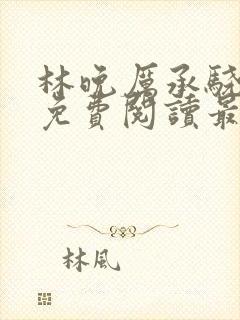 林晚厲承驍
免費閱讀最
林風